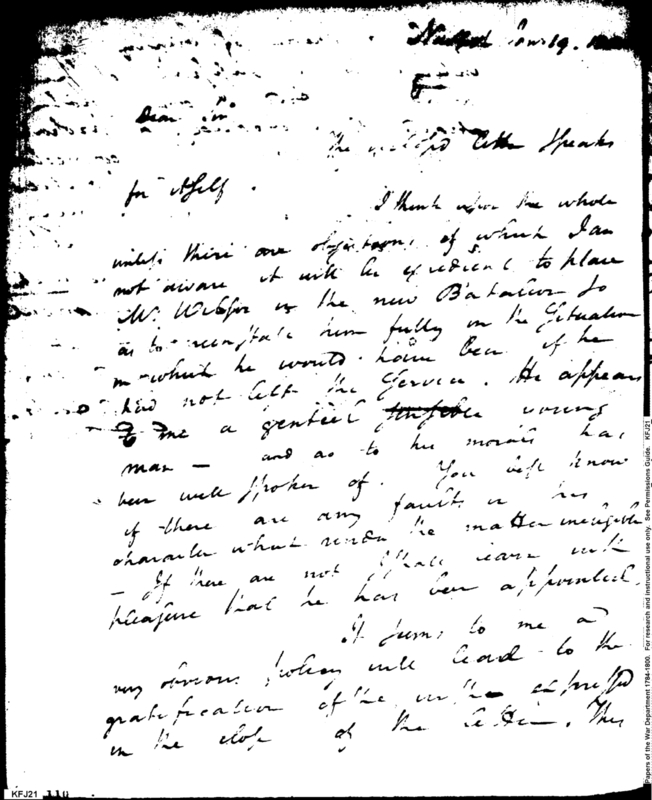 Jan 19.
Dear Sir
The letter speaks
for itself.
I think upon the whole
unless there are objections of which I am
not aware it will be expedient to place
Mr. in the new Batalion so
as to reinstate him fully in the situation
in which he would have been if he
had not left the Service. He appears
to me a genteel sensible young
man — and as to his morals has
been well spoken of. You best know
if there are any faults in his
character which render the matter ineligible
— If there are not I shall learn with
pleasure that he has been appointed.
It seems to me a
very obvious policy will lead to the
gratification of the wish expressed
in the close of the letter. This
KFJ21 110
Papers of the War Department 1784-1800. For research and instructional use only. See Permissions Guide. KFJ21